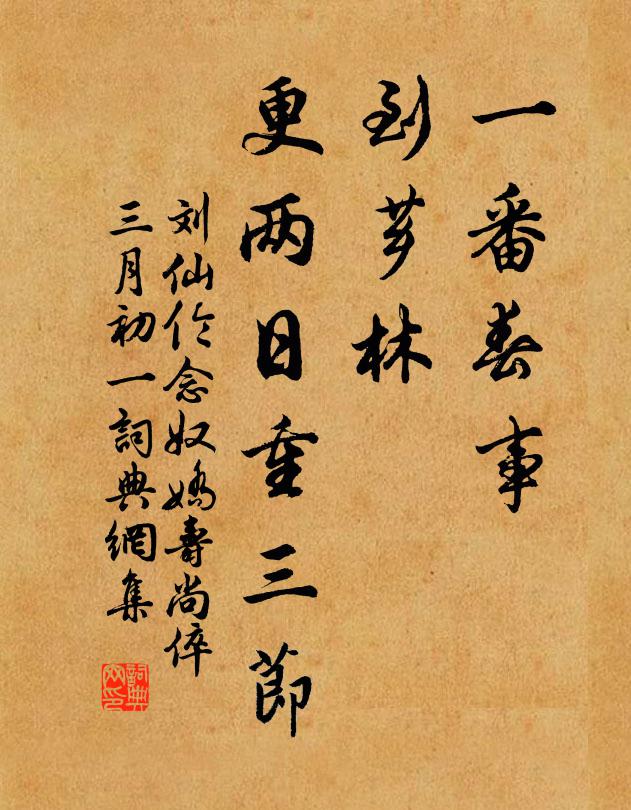 一番春事
到芗林
更两日重三節
刘仙伦念奴嬌壽尚倅
三月初一詞典網集
詞典
网印